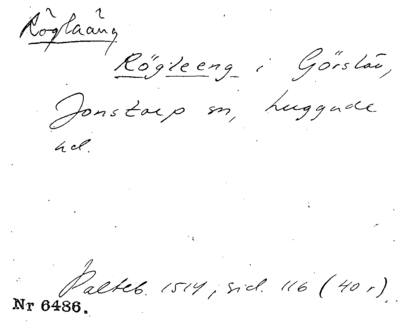 Röglaäng
Rögleeng i Görslöv,
Jonstorp sn, Luggude
hd.
Palteb. 1514, sid. 116 (40 r).
Nr 6486.